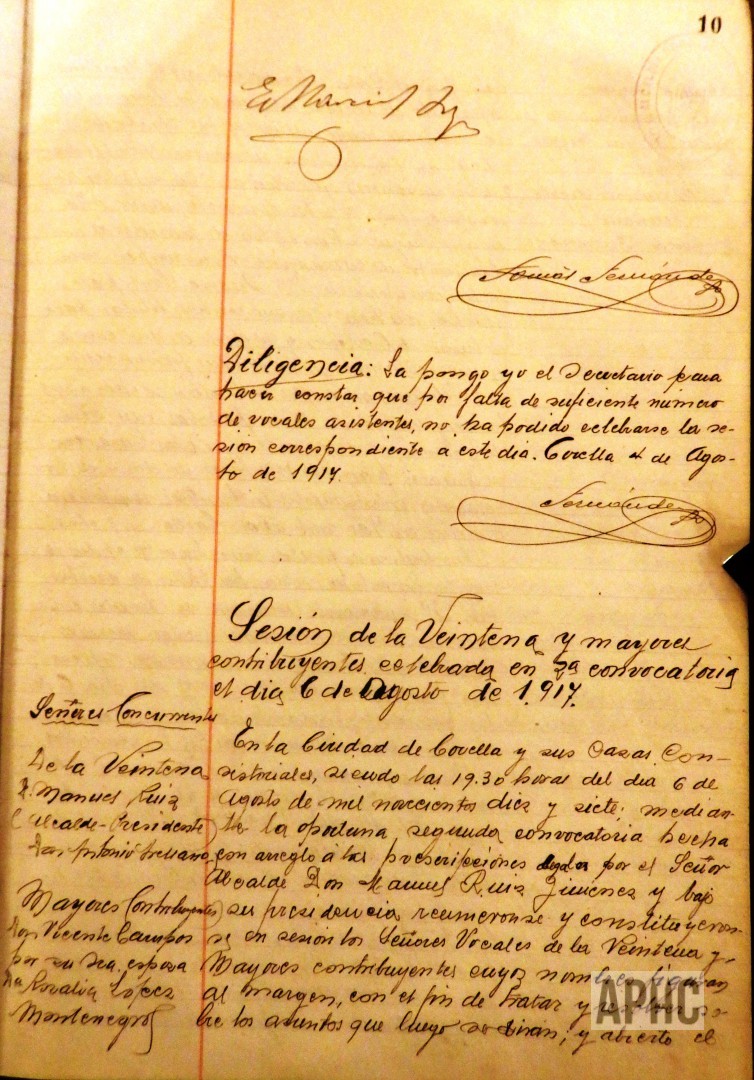 10
Tomás Fernández
Diligencia: La pongo yo el Secretario para
hacer constar que por falta de suficiente numero
de vocales asistentes, no ha podido celebrarse la se-
sion correspondiente a este dia. Corella 4 de Agos-
to de 1917.
Fernández
Sesión de la Veintena y mayores
contribuyentes celebrada en 2ª convocatoria
el dia 6 de Agosto de 1.917.
Señores Concurrentes
De la Veintena
D. Manuel Ruiz
Alcalde-Presidente
Don Antonio
Mayores Contribuyentes
Don Vicente Campos
por su Sra. esposa
Dª Rosalia López
Montenegro
En la Ciudad de Corella y sus Casas Con-
sistoriales, siendo las 19.30 horas del dia 6 de
Agosto de mil novecientos diez y siete; median-
te la oportuna segunda convocatoria hecha
con arreglo á las prescripciones por el Señor
Alcalde Don Manuel Ruiz Jimenez y bajo
su presidencia reunieronse y constituyeron-
se en sesión los Señores Vocales de la Veintena y
Mayores contribuyentes cuyos nombres figuran
al margen, con el fin de tratar y so-
bre los asuntos que luego se diran; y abierto el
APHC